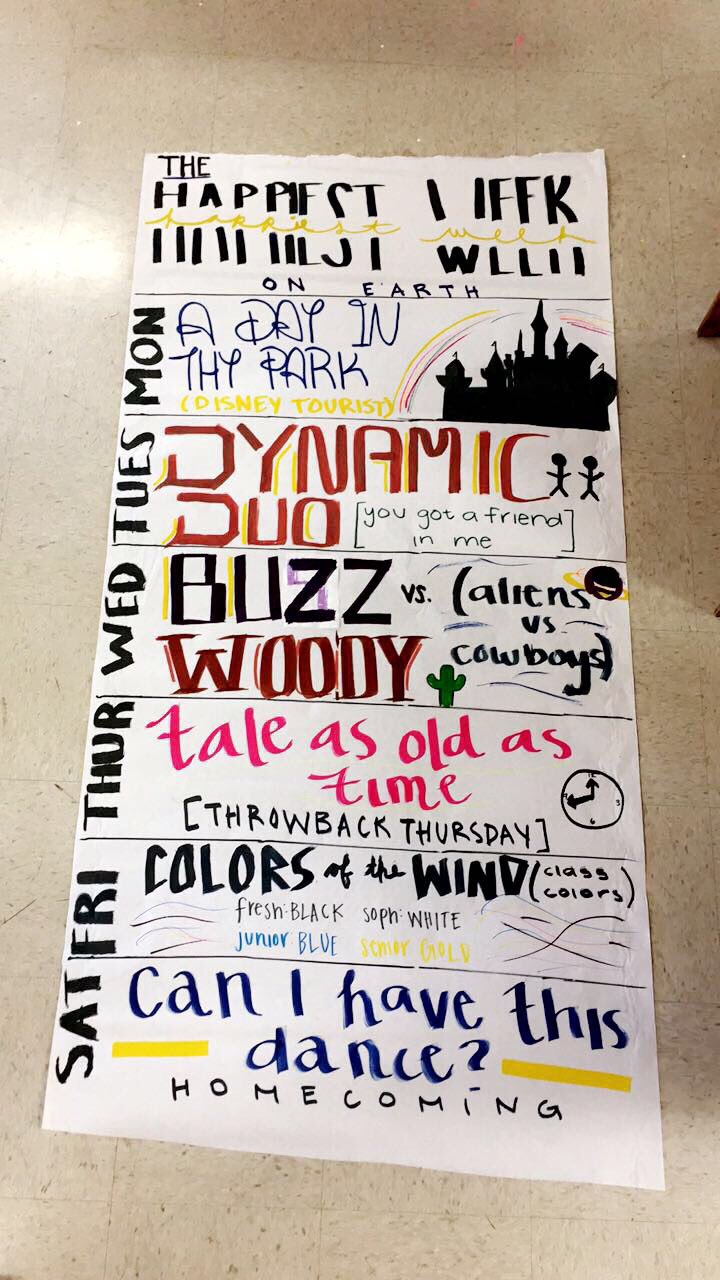 THE
HAPPIEST WEEK
happiest week
ON EARTH
MON
A DAY IN
THY PARK
(DISNEY TOURIST)
TUES
DYNAMIC
DUO [you got a friend
in me]
WED
BUZZ vs. (aliens
vs
WOODY cowboys)
THUR
tale as old as
time
[THROWBACK THURSDAY]
FRI
COLORS of the WIND (class
colors)
fresh: BLACK soph: WHITE
junior: BLUE senior GOLD
SAT
can I have this
dance?
HOMECOMING